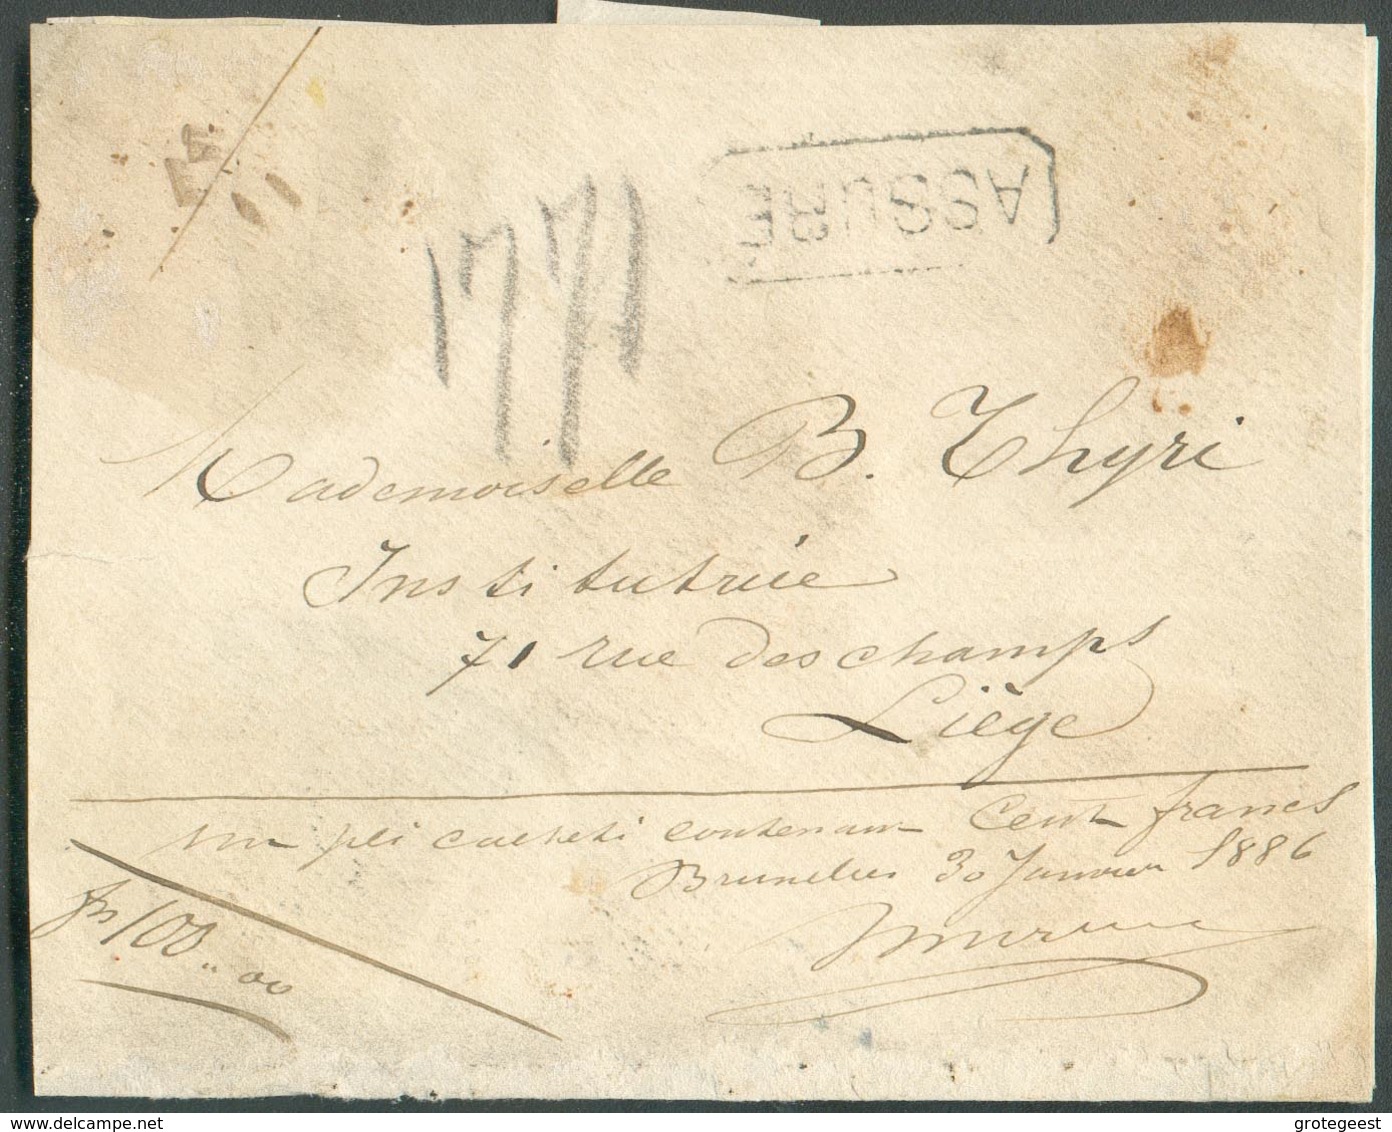 ASSURÉ
1771
Mademoiselle B. Thyri
Institutrice
71 rue des champs
Liège
un pli cacheté contenant Cent francs
Bruxelles 30 Janvier 1886
frs 100 " 00
www.delcampe.net
grotegeest